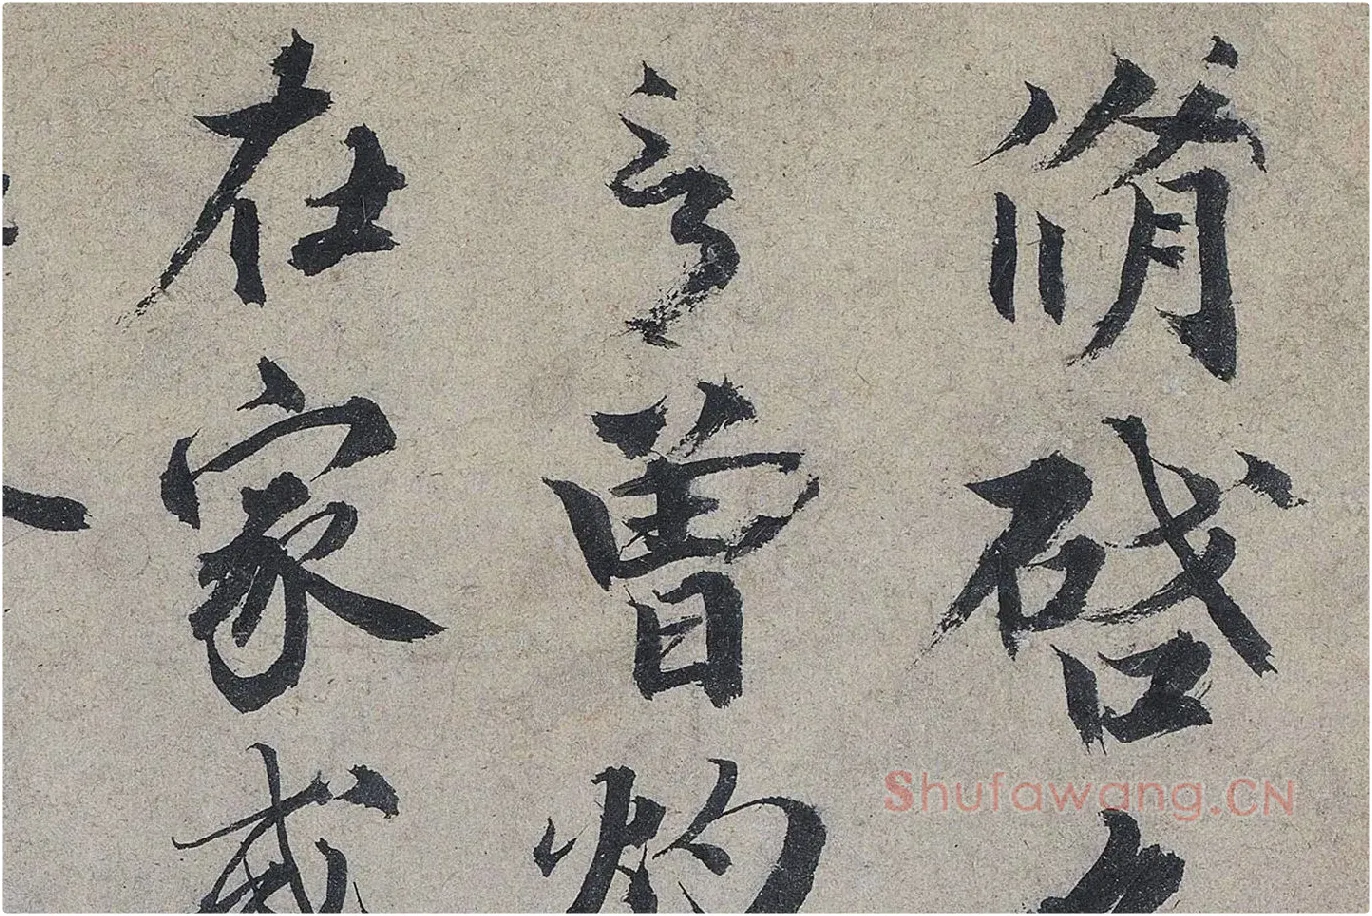 脩啓
言曾灼
在家或
Shufawang.CN